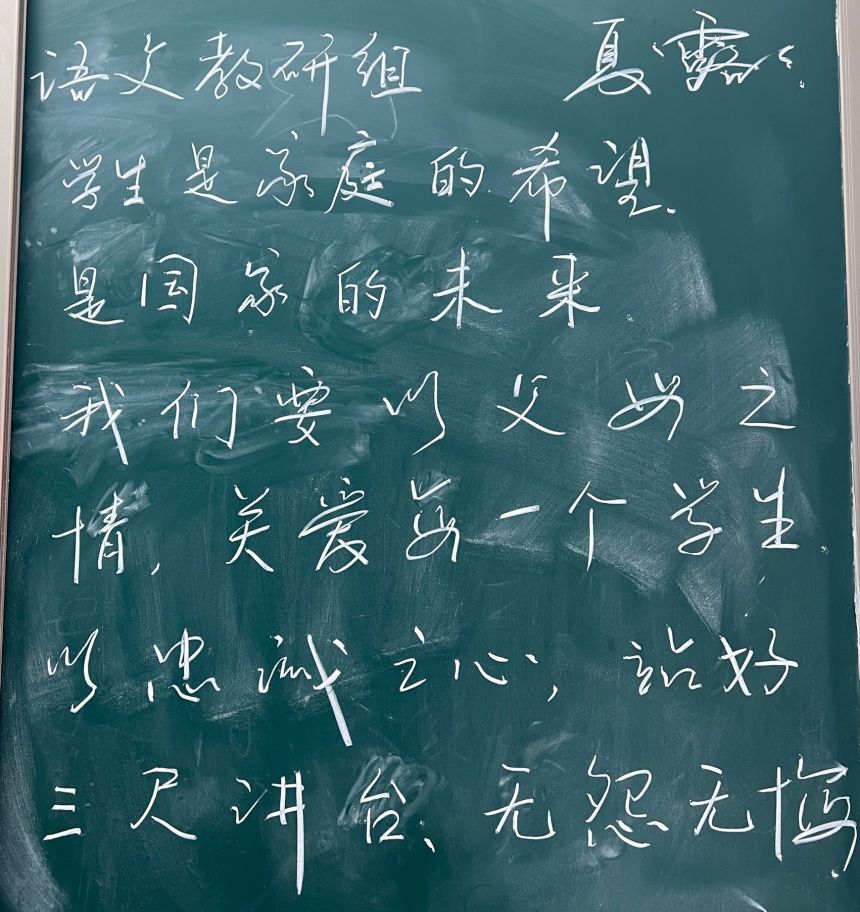 语文教研组 夏露
学生是家庭的希望.
是国家的未来
我们要以父母之
情,关爱每一个学生.
以忠诚之心,站好
三尺讲台、无怨无悔.